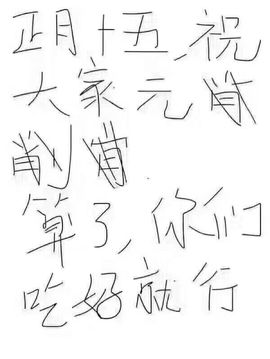 正月十五,祝
大家元
算了,你们
吃好就行